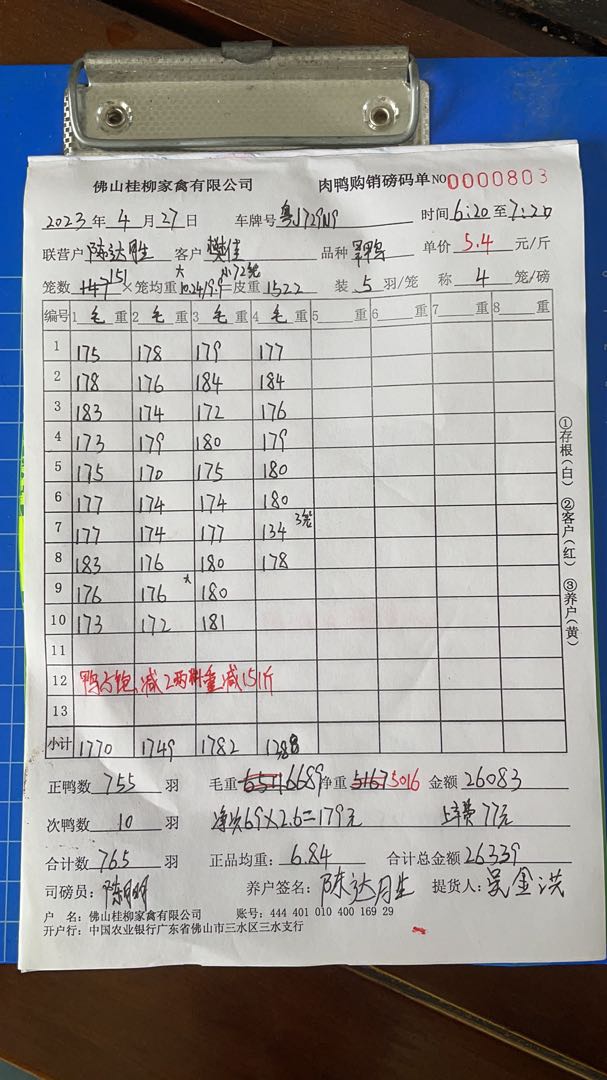 佛山桂柳家禽有限公司 肉鸭购销磅码单 NO 0000803
2023年 4月 27日 车牌号 粤J729N9 时间 6:20 至 7:20
联营户 陈达月生 客户 樊佳 品种 单价 5.4 元/斤
笼数 147 151 × 笼均重 大 10.24/9.9 小72笼 =皮重 1522 装 5 羽/笼 称 4 笼/磅
编号 1 毛 重 2 毛 重 3 毛 重 4 毛 重 5 重 6 重 7 重 8 重
1 175 178 179 177
2 178 176 184 184
3 183 174 172 176
4 173 179 180 179
5 175 170 175 180
6 177 174 174 180
7 177 174 177 134 3笼
8 183 176 180 178
9 176 176 大 180
10 173 172 181
11
12 鸭 饱,减2两料重减151斤
13
小计 1770 1749 1782 1388
正鸭数 755 羽 毛重 6689 净重 5167 5016 金额 26083
次鸭数 10 羽 净次69×2.6=179元 上车费77元
合计数 765 羽 正品均重: 6.84 合计总金额 26339
司磅员: 养户签名: 陈达月生 提货人: 吴金洪
户 名: 佛山桂柳家禽有限公司 账号: 444 401 010 400 169 29
开户行: 中国农业银行广东省佛山市三水区三水支行
①存根(白) ②客户(红) ③养户(黄)